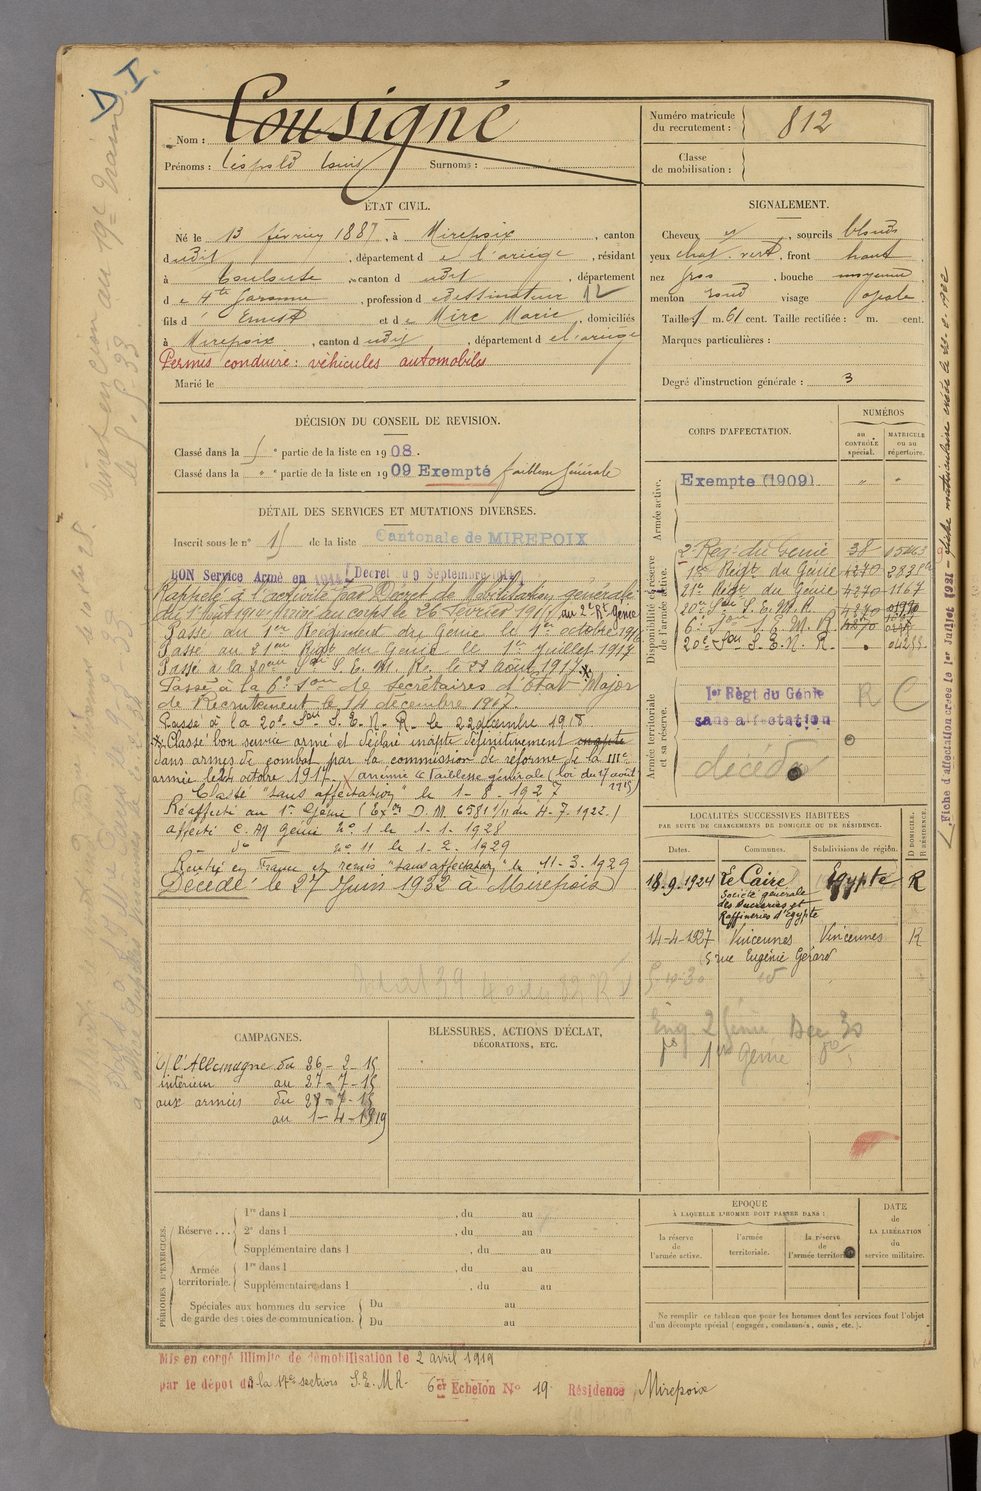 D. I.
Nom : Cousigné
Prénoms : Léopold Louis Surnoms :
Numéro matricule du recrutement : 812
Classe de mobilisation :
ÉTAT CIVIL.
Né le 13 février 1887, à Mirepoix, canton
dudit, département de l'ariège, résidant
à Toulouse, canton dudit, département
de Hte Garonne, profession de dessinateur 12
fils d'Ernest et de Mire Marie, domiciliés
à Mirepoix, canton dudit, département de l'ariège
Permis conduire : véhicules automobiles
Marié le
SIGNALEMENT.
Cheveux et, sourcils blonds
yeux chat. vert, front haut
nez gros, bouche moyenne
menton rond visage ovale
Taille 1 m. 61 cent. Taille rectifiée : m. cent.
Marques particulières :
Degré d'instruction générale : 3
DÉCISION DU CONSEIL DE REVISION.
Classé dans la 5e partie de la liste en 1908.
Classé dans la " e partie de la liste en 1909 Exempté faiblesse générale
DÉTAIL DES SERVICES ET MUTATIONS DIVERSES.
Inscrit sous le n° 15 de la liste Cantonale de MIREPOIX
BON Service Armé en 1914 (Décret du 9 Septembre 1914)
Rappelé à l'activité par Décret de Mobilisation générale
du 1er Août 1914. Arrivé au corps le 26 février 1915, au 2e Rt Génie
Passé au 1er Régiment du Génie le 1er octobre 1916
Passé au 21eme Régt du Génie le 1er Juillet 1917
Passé à la 20eme Son S. E. M. R. le 22 août 1917.
Passé à la 6e Son de Secrétaires d'Etat Major
de Recrutement le 14 décembre 1917.
Passé à la 20e Son S. E. M. R. le 22 décembre 1918
Classé bon service armé et déclaré inapte définitivement inapte
dans armes de combat par la commission de réforme de la IIIe
armée le 24 octobre 1917. anémie et faiblesse générale (loi du 17 août 1915)
Classé "sans affectation" le 1-8-1927
Réaffecté au 1er Génie (Exon D. M. 6581 1/11 du 4-7-1922.)
affecté C. M Génie n° 1 le 1-1-1928
- do - n° 11 le 1-2-1929
Rentré en France et remis "sans affectation" le 11-3-1929
Décédé le 27 Juin 1932 à Mirepoix
CORPS D'AFFECTATION.
NUMÉROS
au CONTRÔLE spécial.
MATRICULE ou au répertoire.
Armée active.
Exempté (1909) " "
Disponibilité et réserve de l'armée active.
2e Régt du Génie 38
1er Régt du Génie 4370
21e Régt du Génie 4370 1167
20e Son S. E. M. R. 4370
6e Son S. E. M. R 4370
20e Son S. E. M. R.
Armée territoriale et sa réserve.
1er Règt du Génie R C
sans affectation
décédé
LOCALITÉS SUCCESSIVES HABITÉES
PAR SUITE DE CHANGEMENTS DE DOMICILE OU DE RÉSIDENCE.
Dates. Communes. Subdivisions de région. D DOMICILE. R RÉSIDENCE.
18.9.1924 Le Caire Egypte R
Société générale
des Sucreries et
Raffineries d'Egypte
14-4-1927 Vincennes Vincennes R
5 rue Eugénie Gérard
Eng 2 Génie Dec 30
1er Génie do
CAMPAGNES.
C/ l'Allemagne du 26-2-15
intérieur au 27-7-15
aux armées du 28-7-15
au 1-4-1919
BLESSURES, ACTIONS D'ÉCLAT,
DÉCORATIONS, ETC.
PÉRIODES D'EXERCICES.
Réserve ...
1re dans l , du au
2e dans l , du au
Supplémentaire dans l , du au
Armée territoriale.
1re dans l , du au
Supplémentaire dans l , du au
Spéciales aux hommes du service de garde des voies de communication.
Du au
Du au
EPOQUE
À LAQUELLE L'HOMME DOIT PASSER DANS :
la réserve de l'armée active.
l'armée territoriale.
la réserve de l'armée territoriale
DATE de LA LIBÉRATION du service militaire.
Ne remplir ce tableau que pour les hommes dont les services font l'objet
d'un décompte spécial (engagés, condamnés, omis, etc.).
Mis en congé illimité de démobilisation le 2 avril 1919
par le dépôt de la 17e section S. E. M R. 6er Echelon N° 19 Résidence Mirepoix
Fiche d'affectation créée le 1er Juillet 1921 - fiche matriculaire créée le